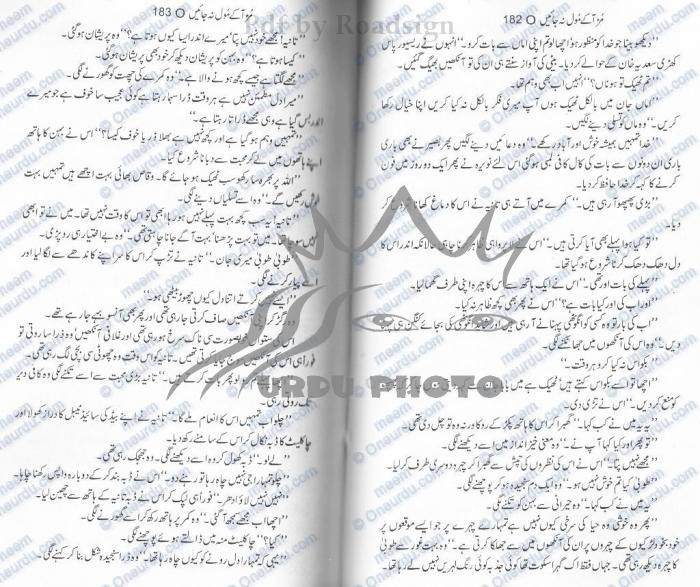 مڑ آ کے مول نہ جائیں O 182
"دیکھو بیٹا جو خدا کو منظور ہو اچھا تم اپنی اماں سے بات کرو۔" انہوں نے ریسیور پاس
کھڑی سعدیہ خان کے حوالے کر دیا۔ بیٹی کی آواز سنتے ہی ان کی تو آنکھیں بھیگ گئیں۔
"تم ٹھیک تو ہوناں؟" انہیں اب بھی وہم تھا۔
"اماں جان میں بالکل ٹھیک ہوں آپ میری فکر بالکل نہ کیا کریں اپنا خیال رکھا
کریں۔" وہ ماں کو تسلی دینے لگیں۔
"خدا تمہیں ہمیشہ خوش اور آباد رکھے۔" وہ دعائیں دینے لگیں پھر بصیر نے بھی باری
باری ان دونوں سے بات کی کال کافی لمبی ہو گئی اس لئے نویرہ نے پھر ایک دو روز میں فون
کرنے کا کہہ کر خدا حافظ کر دیا۔
"بڑی پھپھو آ رہی ہیں۔" کمرے میں آتے ہی تانیہ نے اس کا دماغ کھانا شروع کر
دیا۔
"تو کیا ہوا پہلے بھی آیا کرتی ہیں۔" اس نے لاپروائی ظاہر کرنا چاہی حالانکہ اندر اس کا
دل دھک دھک کرنا شروع ہو گیا تھا۔
"پہلے کی بات اور تھی۔" اس نے ایک ہاتھ سے اس کا چہرہ اپنی طرف گھما لیا۔
"اور اب کی اور کیا بات ہے؟" اس نے پھر بھی کچھ ظاہر نہ کیا۔
"اب کی بار تو وہ کسی کو انگوٹھی پہنانے آ رہی ہیں اور شاید انگوٹھی کی بجائے کنگن ہی پہنا
دیں۔" وہ اس کی آنکھوں میں جھانکنے لگی۔
"بکواس نہ کیا کرو ہر وقت۔"
"اچھا تو اسے بکواس کہتے ہیں ٹھیک ہے میں بابا جان سے
کو منع کر دیں۔" اس نے تڑی دی۔
"یہ یہ میں نے کب کہا۔" گھبرا کر اس کا ہاتھ پکڑ کے روکا ورنہ وہ تو چل دی تھی۔
"تو پھر اور کیا کہا آپ نے۔" وہ معنی خیز انداز میں اسے دیکھنے لگی۔
"مجھے نہیں پتا۔" اس نے اس کی نظروں کی تپش سے گھبرا کر چہرہ دوسری طرف کر لیا۔
"طوبیٰ کیا تم خوش نہیں ہو۔" وہ ایک دم سنجیدہ ہو کر پوچھنے لگی۔
"یہ میں نے کب کہا۔" وہ حیرانی سے بہن کو تکنے لگی۔
"پھر وہ خوشی وہ حیا کی سرخی کیوں نہیں ہے تمہارے چہرے پر جو ایسے موقعوں پر
خود بخود لڑکیوں کے چہروں پر ان کی آنکھوں میں سے جھلکا کرتی ہے۔" وہ بہت غور سے طوبیٰ
کا چہرہ دیکھ رہی تھی۔ جہاں فقط اک گہرا سکوت تھا کوئی جذبہ کوئی رنگ لہریں نہیں لے رہا تھا۔
مڑ آ کے مول نہ جائیں O 183
"تانیہ! مجھے خود نہیں پتا میرے اندر ایسا کیوں ہوتا ہے؟" وہ پریشان ہو گئی۔
"کیسا ہوتا ہے؟" وہ بہن کو پریشان دیکھ کر خود بھی پریشان ہو گئی۔
"مجھے لگتا ہے جیسے کچھ ہونے والا ہے۔" وہ کمرے کی چھت کو گھورنے لگی۔
"میرا دل مطمئن نہیں ہے ہر وقت ڈرا سہما رہتا ہے کوئی عجیب سا خوف ہے جو میرے
اندر بس گیا ہے وہی مجھے ڈراتا رہتا ہے۔"
"تمہیں وہم ہو گیا ہے اور کچھ نہیں ہے بھلا ڈر یا خوف کیسا؟" اس نے بہن کا ہاتھ
اپنے ہاتھوں میں لے کر محبت سے دبانا شروع کیا۔
"اللہ پر بھروسا رکھو سب ٹھیک ہو جائے گا۔ وقاص بھائی بہت اچھے ہیں تمہیں بہت
خوش رکھیں گے۔" وہ اسے تسلیاں دینے لگی۔
"تانیہ یہ سب کچھ بہت پہلے نہیں ہو رہا ابھی تو اس کا وقت نہیں تھا۔ میں نے تو ابھی
نہیں سوچا تھا۔ میں تو بہت پڑھنا بہت آگے جانا چاہتی تھی۔" وہ بے اختیار ہی رو پڑی۔
"طوبیٰ طوبیٰ میری جان۔" تانیہ نے تڑپ کر اس کا سر اپنے کاندھے سے لگا لیا اور
اسے پیار کرنے لگی۔
"ایسے نہیں کرتے اتنا دل کیوں چھوڑ بیٹھی ہو۔"
وہ رگڑ کر اپنی آنکھیں صاف کرتی جا رہی تھی اور پھر بھی آنسو بہے جا رہے تھے۔
اس کی ستواں خوبصورت سی ناک سرخ ہو رہی تھی اور غلافی آنکھیں وہ ذرا سا روتی تو
فوراً ہی اس کی آنکھیں سوج جایا کرتی تھیں۔ تانیہ کو اس وقت وہ چھوٹی سی بچی لگ رہی تھی۔
تانیہ بڑی محبت سے اسے تکنے لگی وہ کافی دیر
تک روتی رہی۔
"چلو اب تمہیں اس کا انعام ملے گا۔" تانیہ نے اپنے بیڈ کی سائیڈ ٹیبل کا دراز کھولا اور
چاکلیٹ کا ڈبہ نکال کر اس کے سامنے رکھ دیا۔
"لے لو۔" ڈبہ کھول کر وہ اسے دیکھنے لگی۔ وہ جھجک رہی تھی۔
"چلو تمہارا جی نہیں چاہ رہا تو رہنے دو۔" اس نے ڈبہ بند کر کے دوبارہ واپس رکھنا چاہا۔
"نہیں نہیں لاؤ ادھر۔" فوراً ہی لپک کر اس نے ڈبہ تانیہ کے ہاتھ سے چھین لیا۔
"اچھا اب مجھے سمجھ آ گئی۔" وہ کمر پر ہاتھ رکھ کر اسے گھورنے لگی۔
"کیا؟" چاکلیٹ منہ میں ڈالتے ہوئے پوچھنے لگی۔
"یہی کہ تمہارا دل رونے کو کیوں چاہ رہا تھا۔" وہ ذرا سنجیدہ شکل بنا کر کہنے لگی۔
Pdf by Roadsign
URDU PHOTO
Oneurdu.com
maam